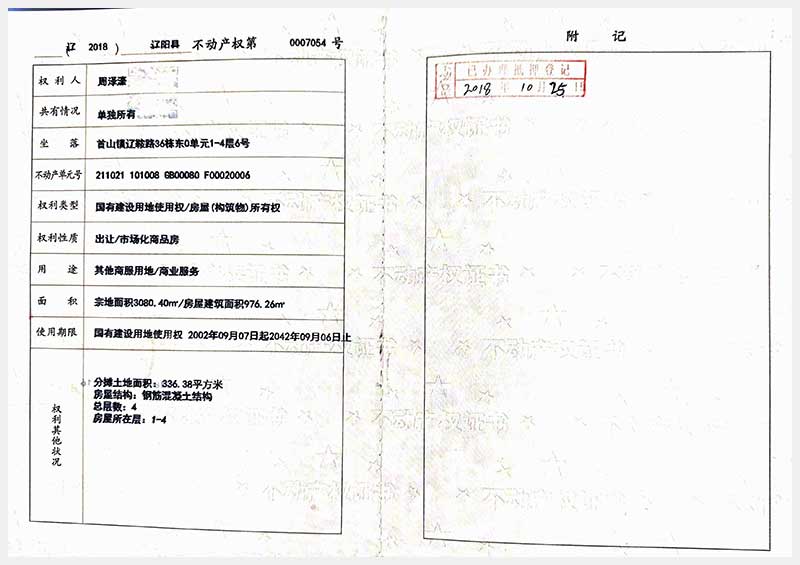 辽 2018 辽阳县 不动产权第 0007054 号
权利人 周泽濠
共有情况 单独所有
坐落 首山镇辽鞍路36栋东0单元1-4层6号
不动产单元号 211021 101008 GB00080 F00020006
权利类型 国有建设用地使用权/房屋(构筑物)所有权
权利性质 出让/市场化商品房
用途 其他商服用地/商业服务
面积 宗地面积3080.40㎡/房屋建筑面积976.26㎡
使用期限 国有建设用地使用权 2002年09月07日起2042年09月06日止
权利其他状况
分摊土地面积：336.38平方米
房屋结构：钢筋混凝土结构
总层数：4
房屋所在层：1-4
附记
已办理抵押登记
2018年10月25日
不动产权证书